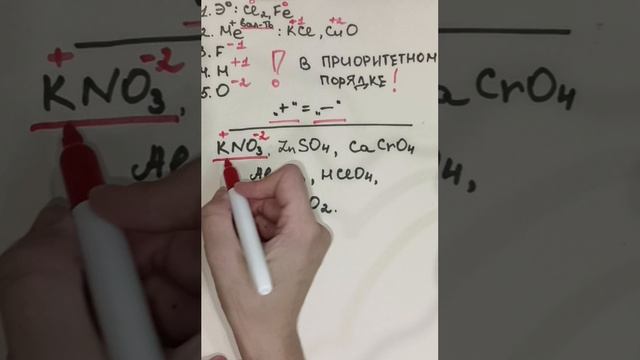 1. Э⁰: Cl₂⁰, Fe⁰
2. Me⁺ вал-ть : K⁺¹Cl, Cu⁺²O
3. F⁻¹
4. H⁺¹ ! В ПРИОРИТЕТНОМ
5. O⁻² ПОРЯДКЕ!
„+“ = „—“
K⁺NO₃⁻², ZnSO₄, CaCrO₄
HClO₄,
O₂.